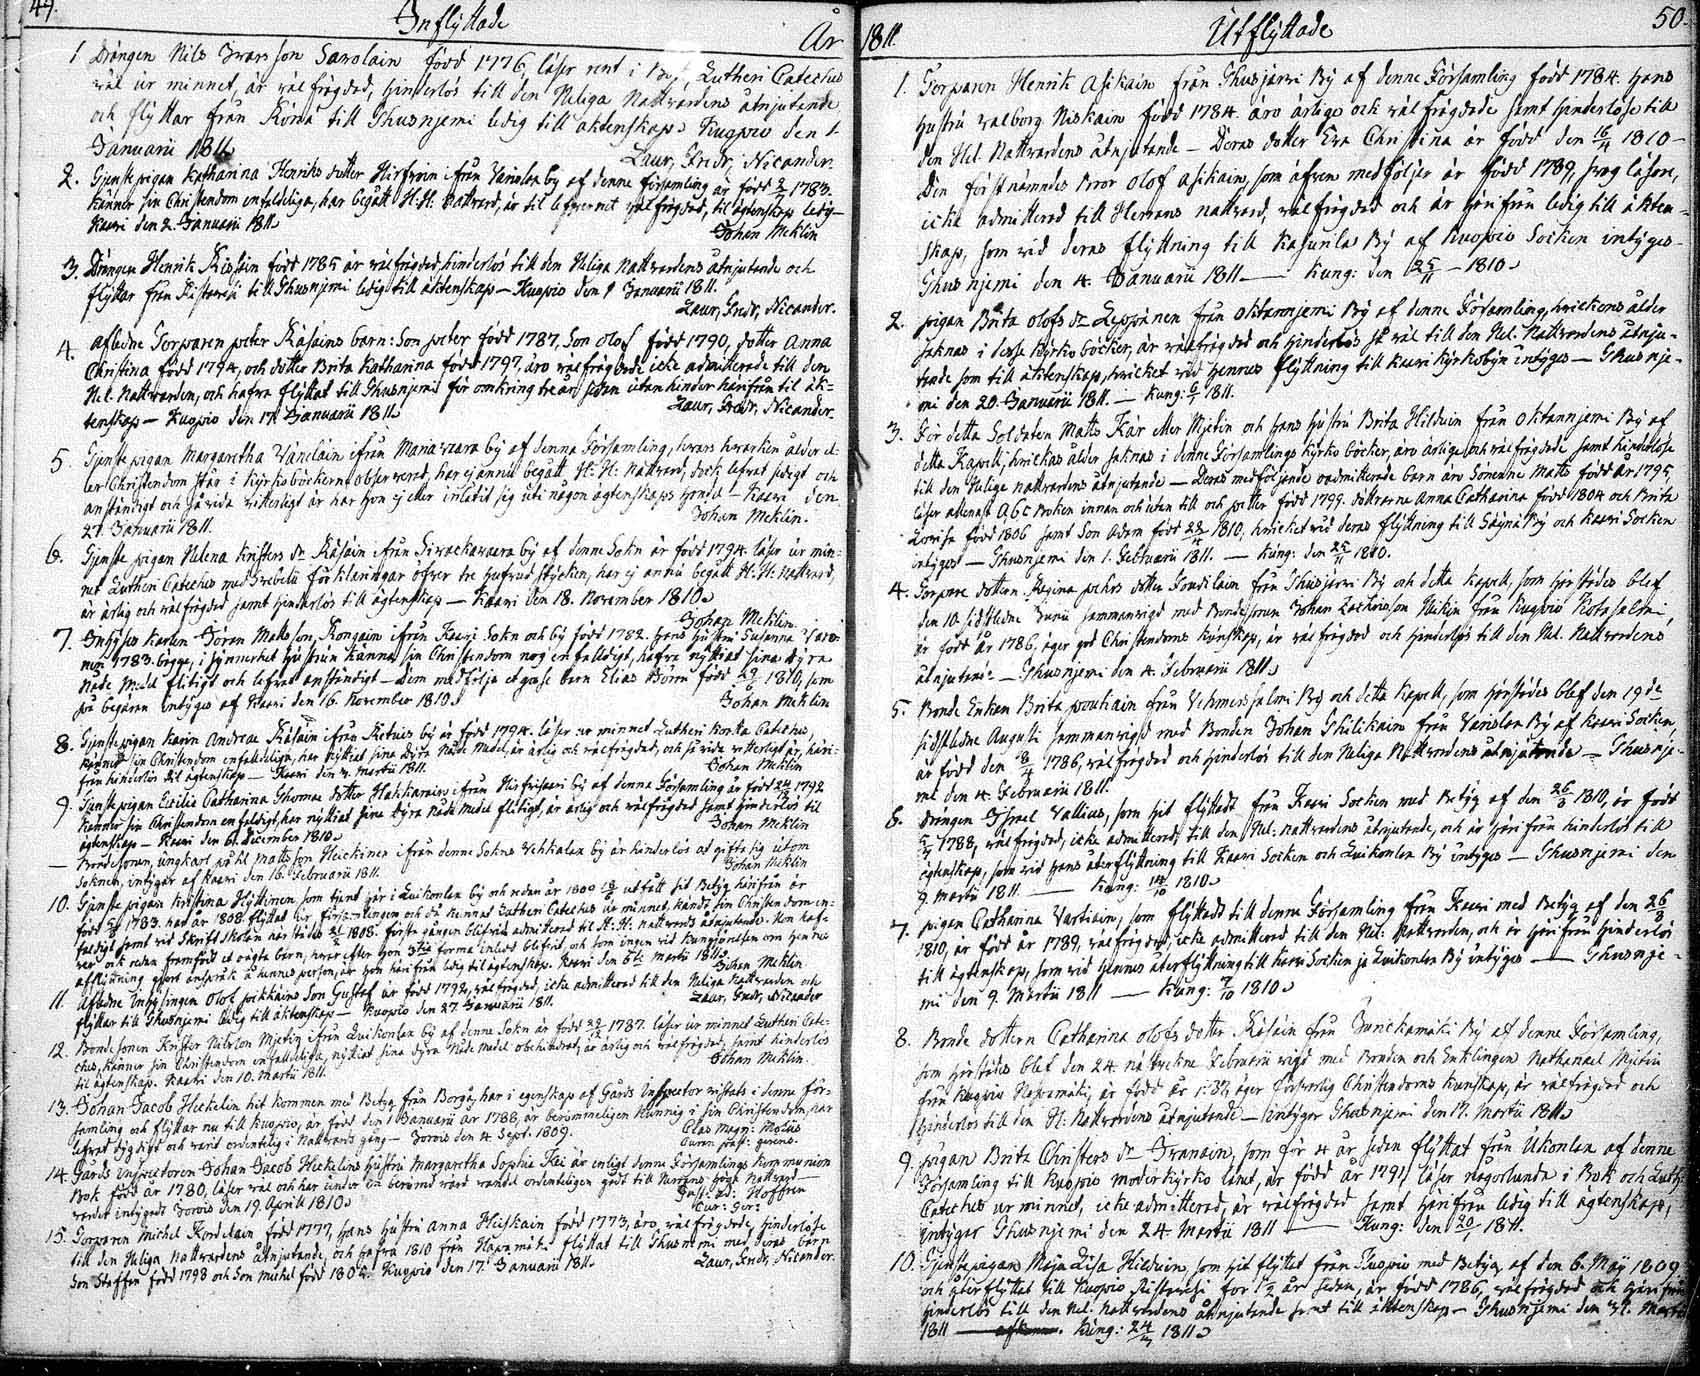 49.
Inflyttade
År
1 Drängen Nils Ivarsson Savolain född 1776, läser rent i Bok, Lutheri Cateches
väl ur minnet, är välfrägdad, hinderlös till den Heliga Nattvardens åtnjutande
och flyttar från till Thusnjemi ledig till äktenskap. Kuopio den 1
Januarii 1811.
Laur, Fredr, Nicander.
2. Tjenste pigan Katharina Henriks dotter Hirfvoin ifrån Vänslax by af denne församling är född 2/7 1783.
känner sin Christendom enfaldeliga, har begått H: H: Nattvard, är til lefvernet välfrägdad, til ägtenskap ledig
Kaavi den 2. Januarii 1811.
Johan Meklin
3. Drängen Henrik född 1785 är välfrägdad, hinderlös till den Heliga Nattvardens åtnjutande och
flyttar från till Thusnjemi ledig till äktenskap — Kuopio den 9 Januarii 1811.
Laur, Fredr, Nicander.
4. aflidne Torparen peter Räsäins barn: Son peter född 1787, Son olof född 1790, dotter Anna
Christina född 1794, och dotter Brita Katharina född 1797, äro välfrägdade icke admitterade till den
Hel. Nattvarden, och hafva flyttat till Thusnjemi för omkring tre år sedan utan hinder härifrån til äk=
tenskap — Kuopio den 17 Januarii 1811.
Laur, Fredr, Nicander.
5. Tjenste pigan Margaretha Vänelain ifrån Mariavaara by af denna Församling, hvars hvarken ålder el-
ler Christendom står i Kyrkoböckerne observerad, har ej ännu begått H: H: Nattvard, dock lefvat sedigt och
anständigt och så vida vitterligt är har hon ej eller inlåtit sig uti någon ägtenskaps handel — Kaavi den
27. Januarii 1811.
Johan Meklin.
6. Tjenste pigan Helena Kristers dr Räsäin ifrån Sivackavaara by af denne Sokn är född 1794. läser ur min-
net Lutheri Cateches med Svebelii förklaringar öfver tre hufvudstycken, har ej ännu begått H: H: Nattvard,
är ärlig och välfrägdad samt hinderlös till ägtenskap — Kaavi den 18. November 1810.
Johan Meklin.
7. Inhyses Karlen Göran Matts son, Kongain ifrån Kaavi Sokn och by född 1782. hans hustru Susanna
1783. begge, i synnerhet hustrun känna sin Christendom nog enfalldigt, hafva nyttjat sina dyra
Nåde Medel flitigt och lefvat anständigt — Dem medfölja et gosse barn Elias Börin född 29/6 1810, som
på begäran intygas af Kaavi den 16. November 1810.
Johan Meklin
8. Tjenste pigan Karin Andreae Räsäin ifrån Kotuis by är född 1794. läser ur minnet Lutheri Korta Cateches
känner sin Christendom enfalldeligen, har nyttjat sina Dyra Nåde Medel, är ärlig och välfrägdad, och så vida vitterligt är, häri-
från hinderlös til ägtenskap — Kaavi den 7. Martii 1811.
Johan Meklin
9. Tjenste pigan Cecilia Catharina Thomae dotter Hakkarain ifrån by af denna Församling är född 24/12 1792
känner sin Christendom enfaldigt, har nyttjat sina Dyra Nåde Medel flitigt, är ärlig och välfrägdad samt hinderlös til
ägtenskap — Kaavi den 6. December 1810.
Johan Meklin
— Bondesonen, ungkarl påhl Matts son Heickinen ifrån denne Sokns Vehkalax by är hinderlös at gifta sig utom
Soknen, intygar af Kaavi den 16. Februarii 1811.
Johan Meklin
10. Tjenste pigan Kristina Hyttinen som tjent här i Luikonlax by och redan år 1809 utfått sit Betyg härifrån är
född 1783. har år 1808 flyttat til församlingen och då kunnat Lutheri Cateches ur minnet, känt sin Christendom en-
faldigt samt vid Skriftskolan här 1808. första gången blifvit admitterad til H: H: Nattvards åtnjutande. Hon haf-
ver ock redan framfödt et oägta barn, hvarefter hon forma enlevd blifvit, och som ingen vid kungjörelsen om hennes
afflyttning gjort anspråk å hennes person, är hon härifrån ledig til ägtenskap. Kaavi den 5te Martii 1811.
Johan Meklin
11. aflidne Inhysingen olof Son Gustaf är född 1792, välfrägdad, icke admitterad till den Heliga Nattvarden och
flyttar till Thusnjemi ledig till äktenskap — Kuopio den 27. Januarii 1811.
Laur, Fredr, Nicander
12. Bondesonen Krister Nilsson Mjetin ifrån Luikonlax by af denne Sokn är född 1787. läser ur minnet Lutheri Cate-
ches, känner sin Christendom enfalldeliga, nyttjat sina dyra Nåde Medel obehindrat, är ärlig och välfrägdad, samt hinderlös
til ägtenskap. Kaavi den 10. Martii 1811.
Johan Meklin.
13. Johan Jacob Heckelin hit kommen med Betyg från Borgå, har i egenskap af Gårds Inspector vistats i denne för-
samling och flyttar nu till Kuopio, är född den 1 Januarii år 1788, är berömmeligen kunnig i sin Christendom, har
lefvat dygdigt och varit ordentelig i Nattvards gång — Jorois den 4 Sept. 1809.
Clas Magn: Molius
Curam past: gerens.
14. Gårds Inspectoren Johan Jacob Heckelins hustru Margaretha Sophia är enligt denne Församlings Kommunion
Bok född år 1780, läser väl och har under en berömd vård vandel ordenteligen gådt till Herrans höga Nattvard
varder intygadt Jorois den 19. Aprill 1810.
Hoffren
15. Torparen Michel Kordelain född 1777, hans hustru Anna Hiiskain född 1773, äro, välfrägdade, hinderlöse
till den Heliga Nattvardens åtnjutande, och hafva 1810 från Hapamäki flyttat till Thusnjemi med deras barn
Son Staffan född 1798 och Son Michel född 1804. Kuopio den 17. Januarii 1811.
Laur, Fredr, Nicander.
1811.
Utflyttade
50.
1. Torparen Henrik Asikain från Thusjärvi By af denne Församling född 1784. hans
hustru Valborg Niskain född 1784. äro ärlige och välfrägdade samt hinderlöse till
den Hel. Nattvardens åtnjutande — Deras dotter Eva Christina är född den 16/4 1810 —
Den förstnämndes Bror olof Asikain, som äfven medföljer är född 1789, svag läsare,
icke admitterad till Herrans nattvard, välfrägdad och är härifrån ledig till äkten=
skap, som vid deras flyttning till Kasurila By af Kuopio Socken intygas —
Thusnjemi den 4. Januarii 1811 — Kung: den 25/11 — 1810.
2. pigan Brita olofs dr Leppänen från oktannjemi By af denne Församling, hvickens ålder
saknas i desse kyrkoböcker, är välfrägdad och hinderlös så väl till den Hel. Nattvardens åtnju-
tande som till äktenskap, hvicket vid hennes flyttning till Kaavi kyrkobyn intygas — Thusnje-
mi den 20. Januarii 1811. — Kung: 6/1 1811.
3. För detta Soldaten Matts Kär eller Mjetin och hans hustru Brita Hilduin från oktannjemi By af
detta Kapell, hvickas ålder saknas i denne Församlings kyrko böcker, äro ärlige och välfrägdade samt hinderlöse
till den Helige nattvardens åtnjutande — Deras medföljande oadmitterade barn äro Sönerne Matts född år 1795,
läser allenast ABC Boken innan och utan till och petter född 1799. döttrarne Anna Catharina född 1804 och Brita
Lovisa född 1806 samt Son Adam född 22/11 1810, hvicket vid deras flyttning till Säynä By och Kaavi Socken
intygas — Thusnjemi den 1. Februarii 1811. — Kung: den 25/11 1810.
4. Torpare dottren Regina pehrs dotter från Thusjärvi By och detta Kapell, som härstädes blef
den 10. sidstledne Junii sammanvigd med Bondesonen Johan Zachrisson från Kuopio Kotasalmi,
är född år 1786, äger god Christendoms Kunskap, är välfrägdad och hinderlös till den Hel. Nattvardens
åtnjutande — Thusnjemi den 4. Februarii 1811.
5. Bonde Enkan Brita poutiain från Vehmersjalmi By och detta Kapell, som härstädes blef den 19de
sidstledne Augusti sammanvigd med Bonden Johan Thilikain från Vänslax By af Kaavi Socken,
är född den 18/4 1786, välfrägdad och hinderlös till den Heliga Nattvardens åtnjutande — Thusnje-
mi den 4. Februarii 1811.
6. Drängen Israel Vallius, som hit flyttadt från Kaavi Socken med Betyg af den 26/3 1810, är född
5/7 1788, välfrägdad, icke admitterad till den Hel: nattvardens åtnjutande, och är härifrån hinderlös till
ägtenskap, som vid hans återflyttning till Kaavi Socken och Luikonlax By intygas — Thusnjemi den
9. Martii 1811. — Kung: 14/10 1810.
7. pigan Catharina Vartiain, som flyttadt till denne Församling från Kaavi med Betyg af den 26/3
1810, är född år 1789, välfrägdad, icke admitterad till den Hel. Nattvarden, och är härifrån hinderlös
till ägtenskap, som vid hennes återflyttning till Kaavi Socken ja Luikonlax By intygas — Thusnje-
mi den 9. Martii 1811 — Kung: 7/10 1810.
8. Bonde dottern Catharina olofs dotter Räsäin från By af denne Församling,
som härstädes blef den 24. nästvekne Februarii vigd med Bonden och Enklingen Nathanael Mjetin
från Kuopio Hapamäki, är född år äger försvarlig Christendoms kunskap, är välfrägdad och
hinderlös till den H: Nattvardens åtnjutande — intygar Thusnjemi den 17. Martii 1811.
9. pigan Brita Christers dr Ivanain, som för 4 år sedan flyttat från Ukonlax af denne
Församling till Kuopio moderkyrko länet, är född år 1791, läser någorlunda i Bok och Luth:
Cateches ur minnet, icke admitterad, är välfrägdad samt härifrån ledig till ägtenskap,
intygar Thusnjemi den 24. Martii 1811 — Kung: den 20/1 1811.
10. Tjenstepigan Maja Lisa Hilduin, som hit flyttat från Kuopio med Betyg af den 6. Maij 1809
och återflyttat till Kuopio Ristavesi för 1 1/2 år sedan, är född 1786, välfrägdad och härifrån
hinderlös till den Hel. Nattvardens åtnjutande samt till äktenskap — Thusnjemi den 31. Martii
1811 — Kung: 24/3 1811.